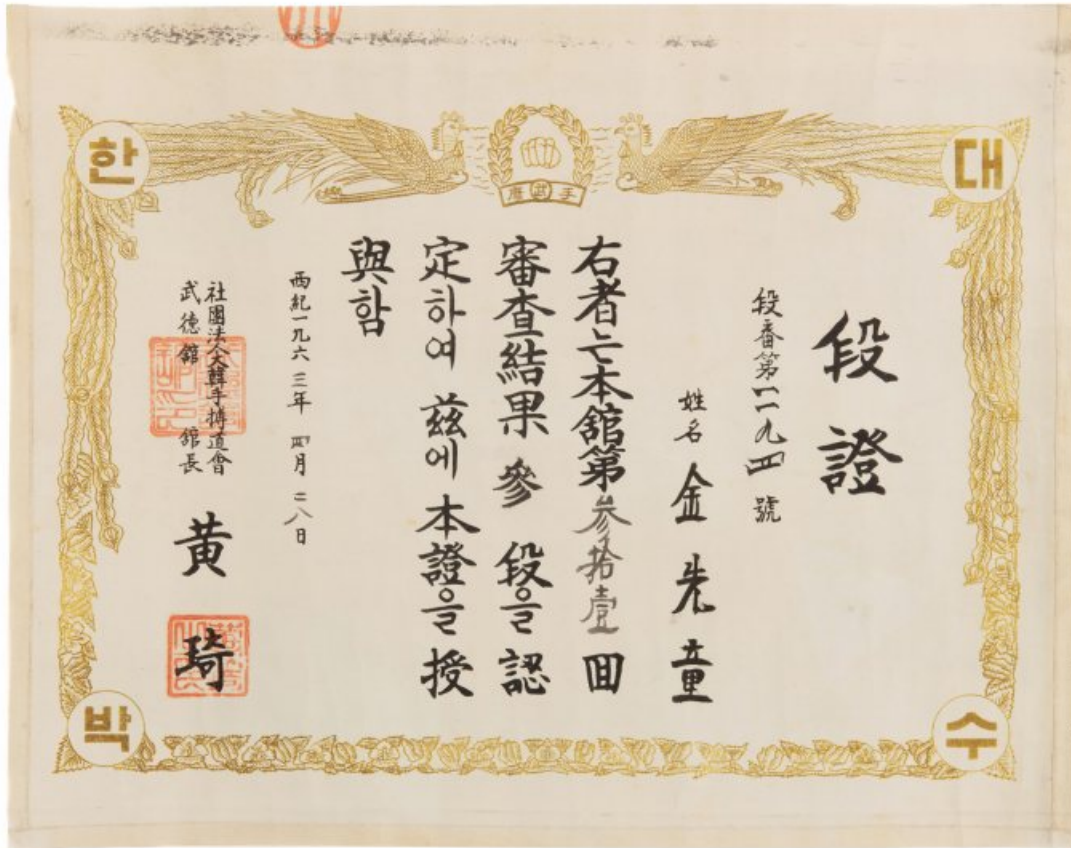 대 한
수 박
段證
段番第一一九四號
姓名 金 童
右者는本舘第参拾壹回
審査結果 參 段을 認
定하여 玆에 本證을 授
與함
西紀一九六三年 四月 二八日
社團法人大韓手搏道會
武德舘 舘長
黃琦